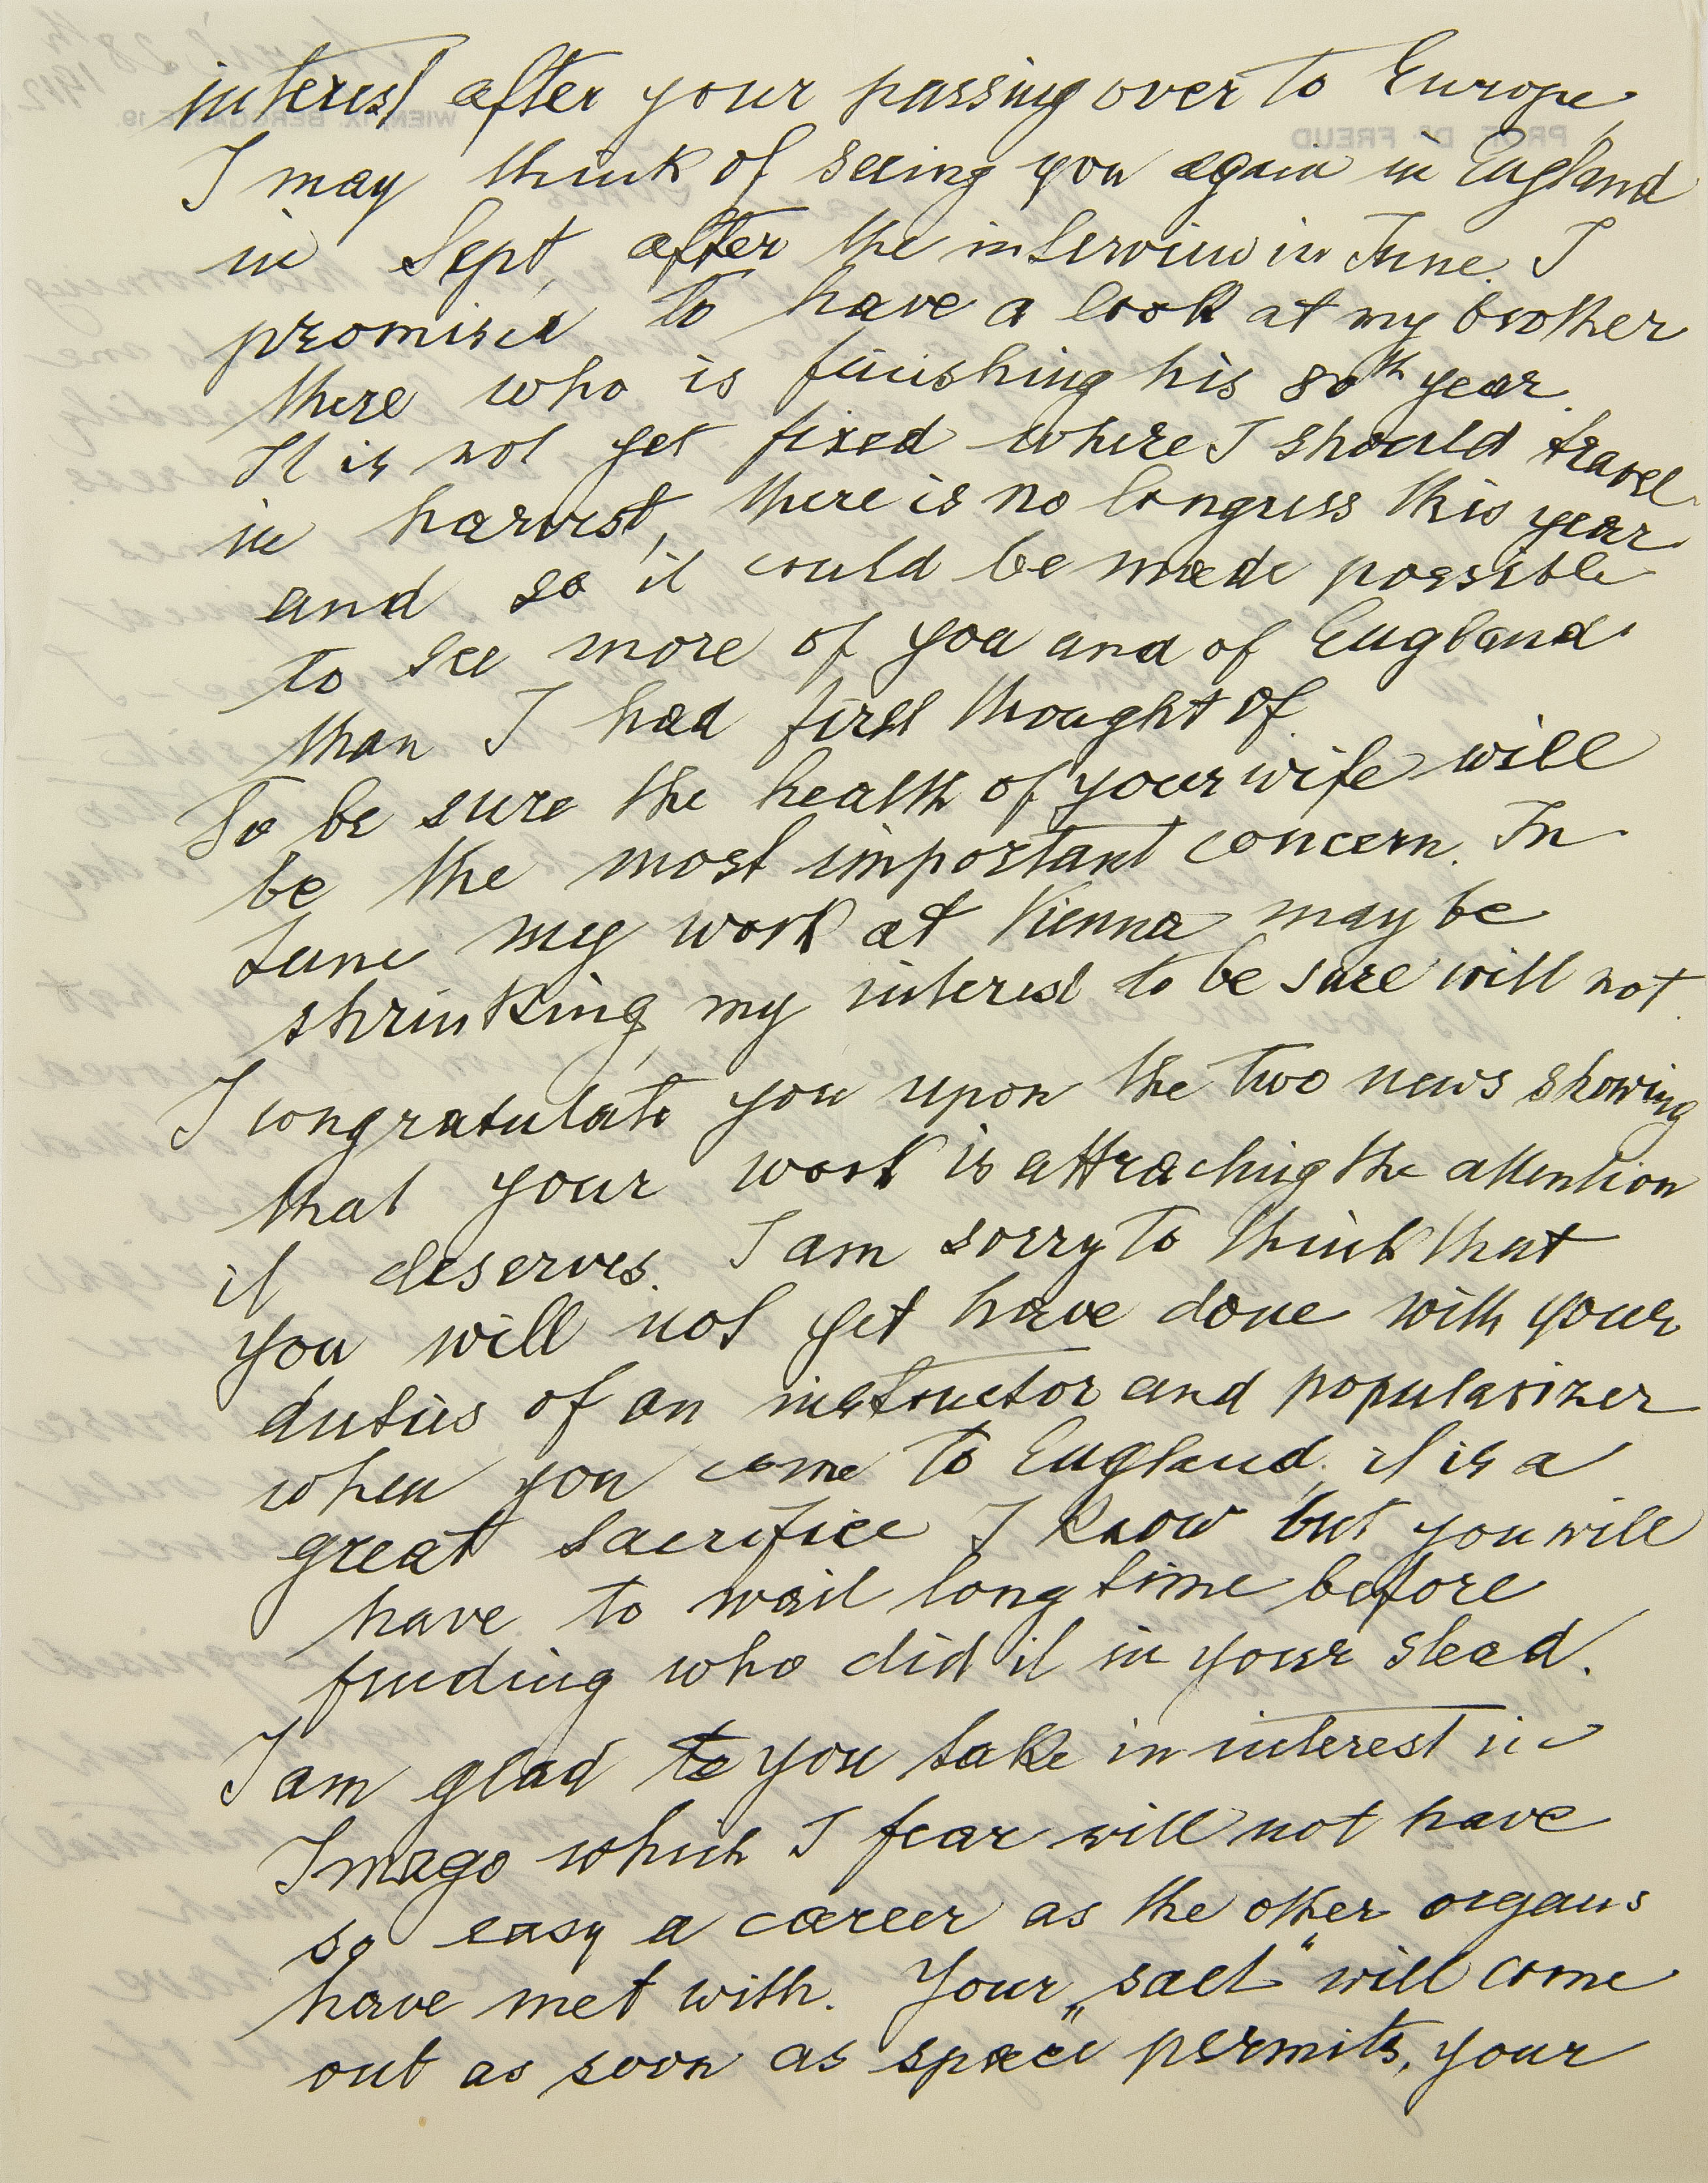 interest after your passing over to Europe,
I may think of seeing you again in England
in Sept, after the interview in June. I
promised to have a look at my brother
there who is finishing his 80th year.
It is not yet fixed where I should travel
in harvest, there is no Congress this year
and so it could be made possible
to see more of you and of England
than I had first thought of.
To be sure the health of your wife will
be the most important concern. In
June my work at Vienna may be
shrinking, my interest to be sure will not.
I congratulate you upon the two news showing
that your work is attracting the attention
it deserves. I am sorry to think that
you will not yet have done with your
duties of an instructor and popularizer
when you come to England, it is a
great sacrifice I know but you will
have to wait long time before
finding who did it in your stead.
I am glad to you take in interest in
Imago which I fear will not have
so easy a career as the other organs
have met with. Your „salt“ will come
out as soon as space permits, your
PROF. DR. FREUD
WIEN, IX. BERGGASSE 19.
April 28th
1912